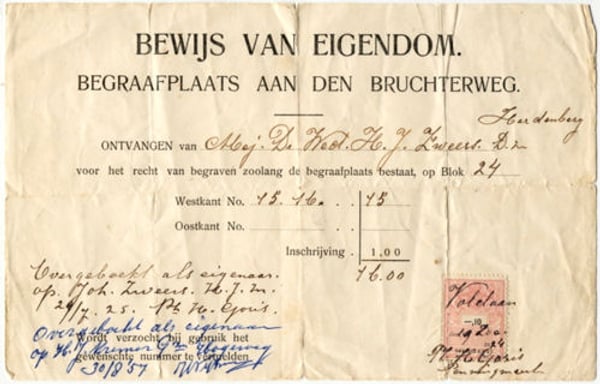 BEWIJS VAN EIGENDOM.
BEGRAAFPLAATS AAN DEN BRUCHTERWEG.
Hardenberg
ONTVANGEN van Mej. De Wed. H. J. Zweers. D.zn
voor het recht van begraven zoolang de begraafplaats bestaat, op Blok 24
Westkant No. 15. 16. . . 15
Oostkant No. . .
Inschrijving 1,00
16.00
Overgeboekt als eigenaar.
op. Joh. Zweers. H. J. zn.
29/7. 25. H. Goris.
Voldaan
-.10
192
H. Goris
Penningmeest
Overgeboekt als eigenaar
op H. J. Kremer Gzn Hogeweg
Wordt verzocht bij gebruik het
gewenschte nummer te vermelden.
30/8 57